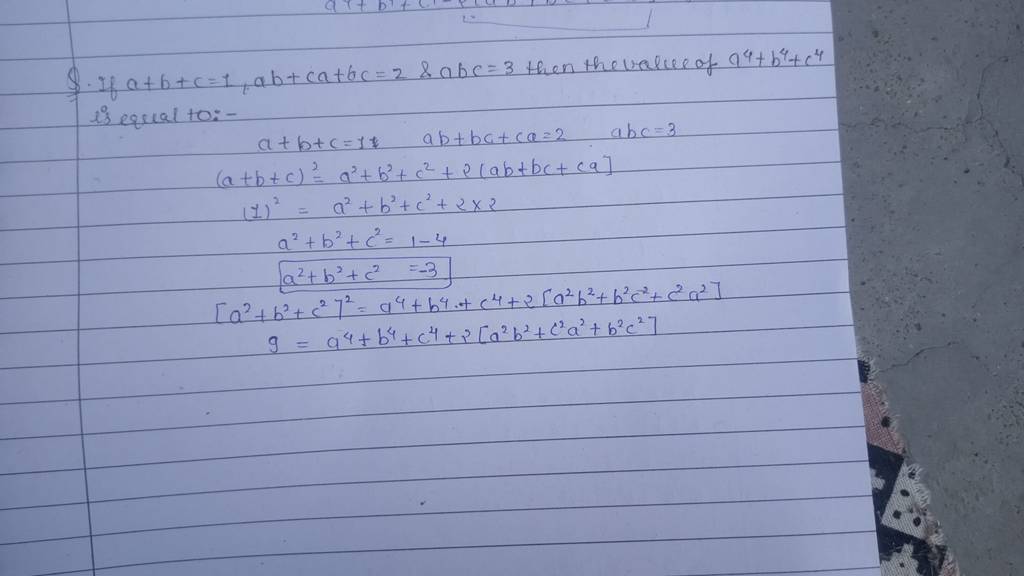 Q. If a+b+c=1, ab+ca+bc=2 & abc=3 then the value of a⁴+b⁴+c⁴
is equal to:-
a+b+c=1 ab+bc+ca=2 abc=3
(a+b+c)² = a²+b²+c²+2(ab+bc+ca]
(1)² = a²+b²+c²+2×2
a²+b²+c² = 1-4
a²+b²+c² =-3
[a²+b²+c²]² = a⁴+b⁴+c⁴+2[a²b²+b²c²+c²a²]
9 = a⁴+b⁴+c⁴+2[a²b²+c²a²+b²c²]